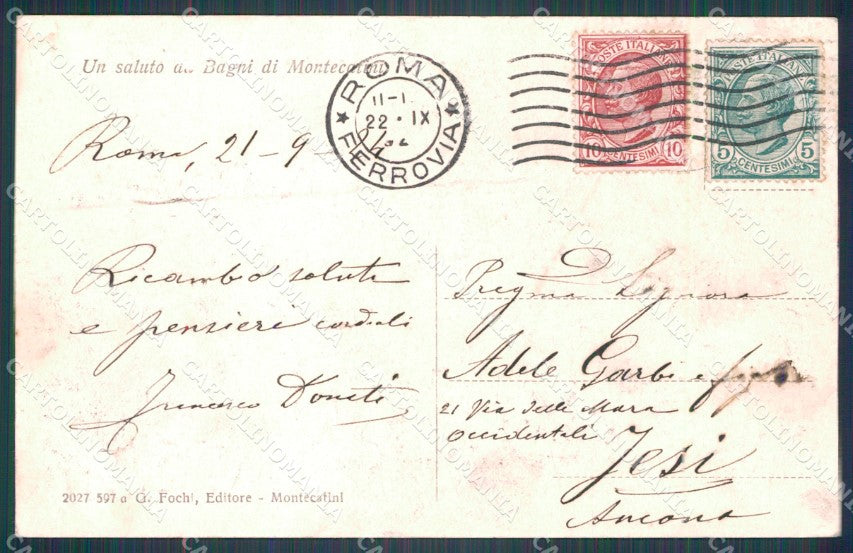 Un saluto da Bagni di Montecatini
ROMA
11-1
22 · IX
FERROVIA
POSTE ITALIANE
10 CENTESIMI 10
POSTE ITALIANE
5 CENTESIMI 5
Roma, 21-9-
Ricambo saluti
e pensiere cordiali
Francesco Donati
Pregma Signora
Adele Garbi e
21 Via delle Mura
Occidentali
Jesi
Ancona
2027 597 a G. Fochi, Editore - Montecatini
CARTOLINOMANIA